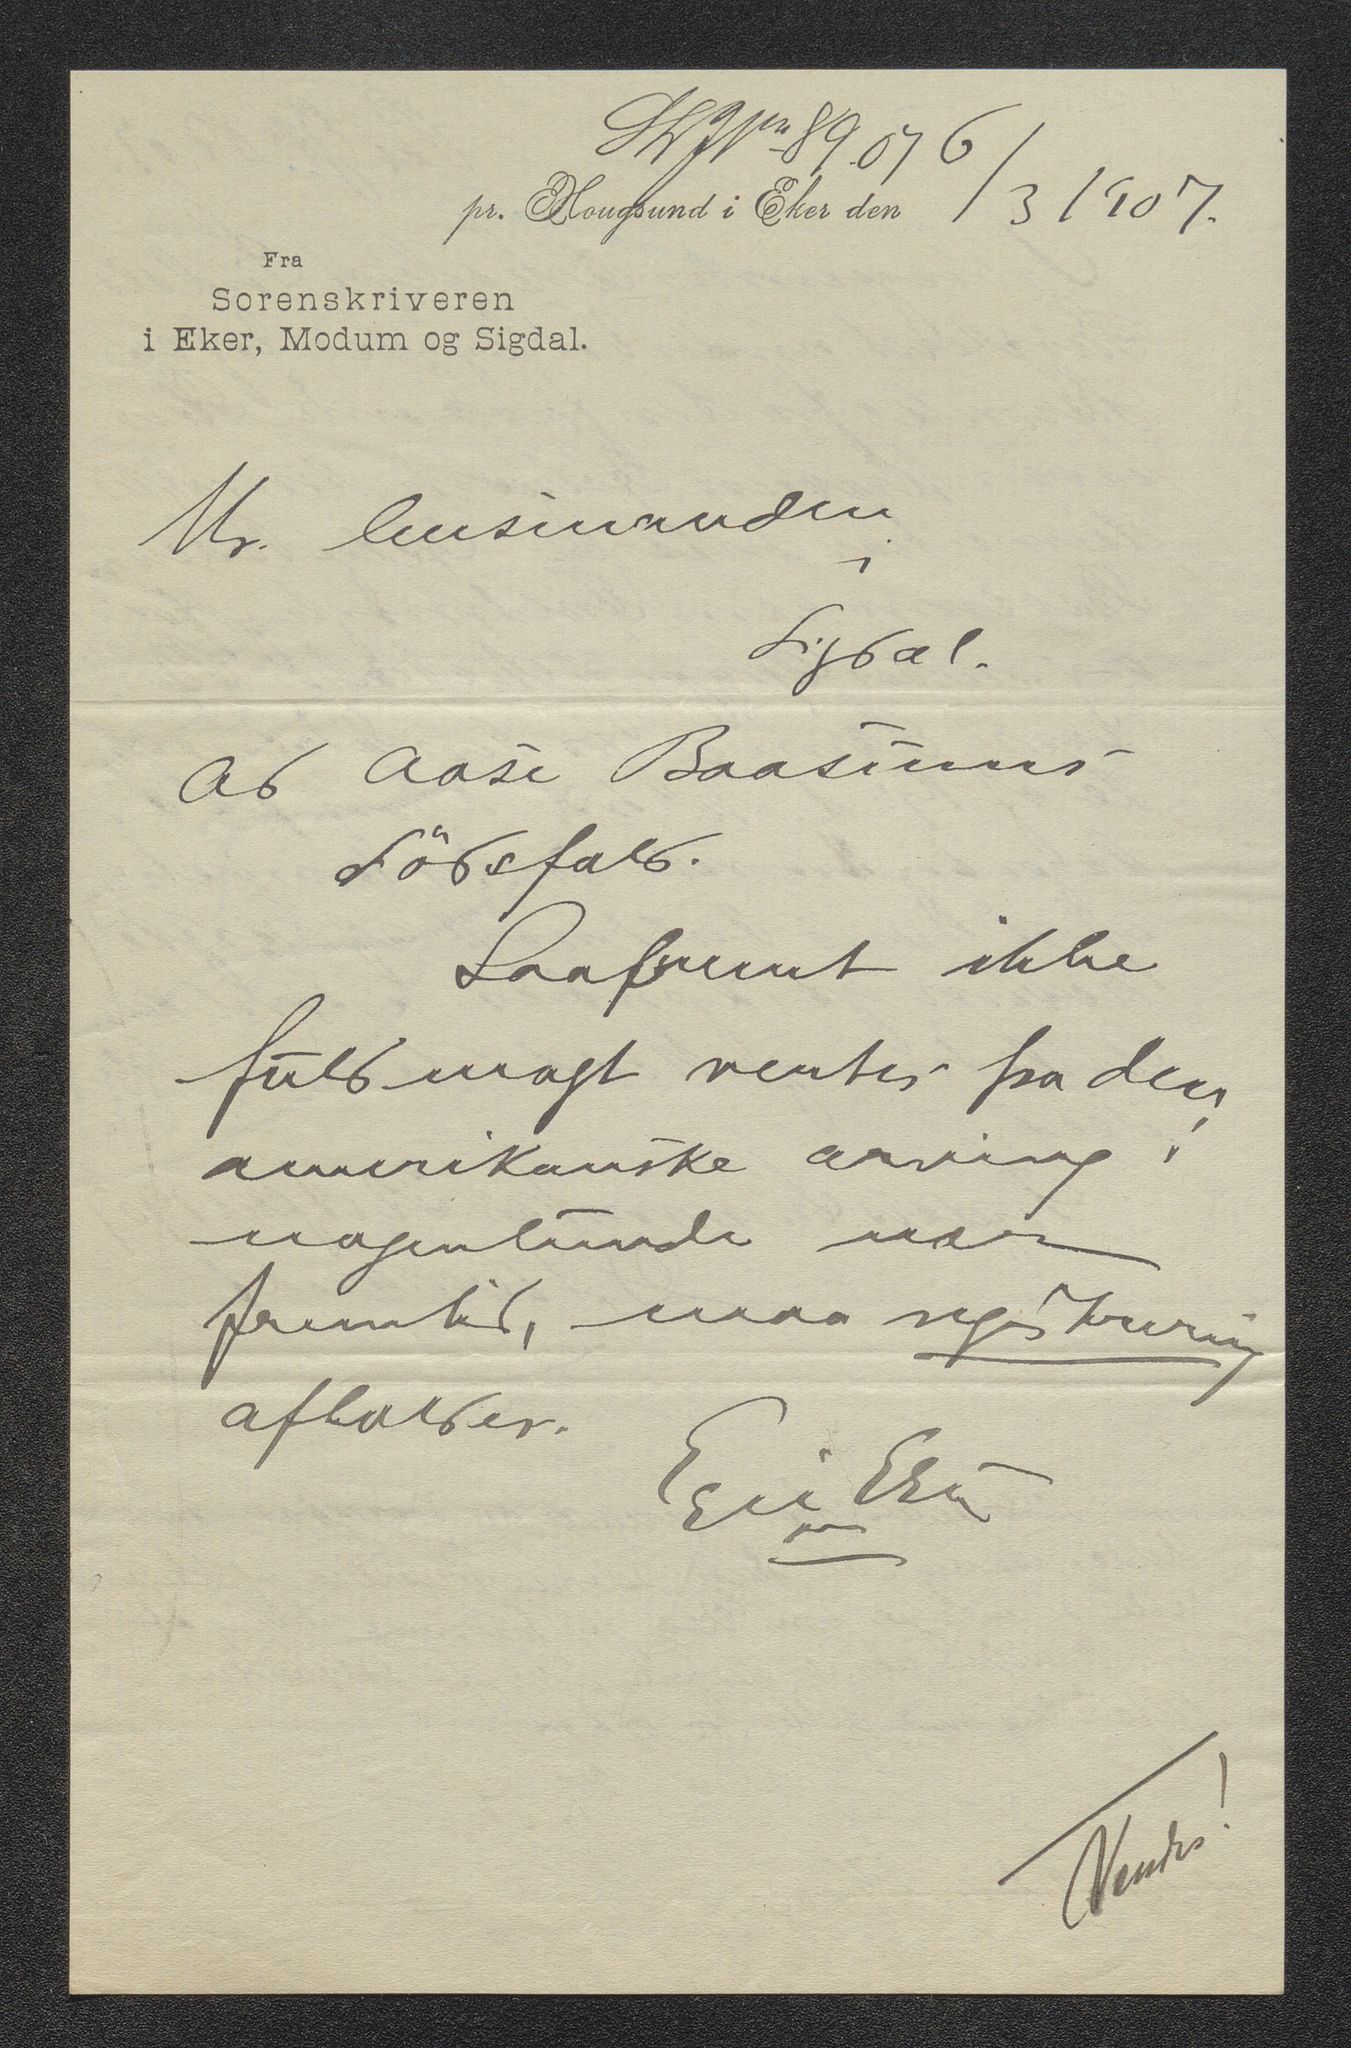 89.07 6/3 1907.
pr. Hougsund i Eker den
Fra
Sorenskriveren
i Eker, Modum og Sigdal.
Hr. lensmanden
i
Sigdal.
Ad Aase Baastuens
dödsfald.
Saafremt ikke
fuldmagt ventes fra den
amerikanske arving i
nogenlunde nær
fremtid, maa registrering
afholdes.
Vendes!